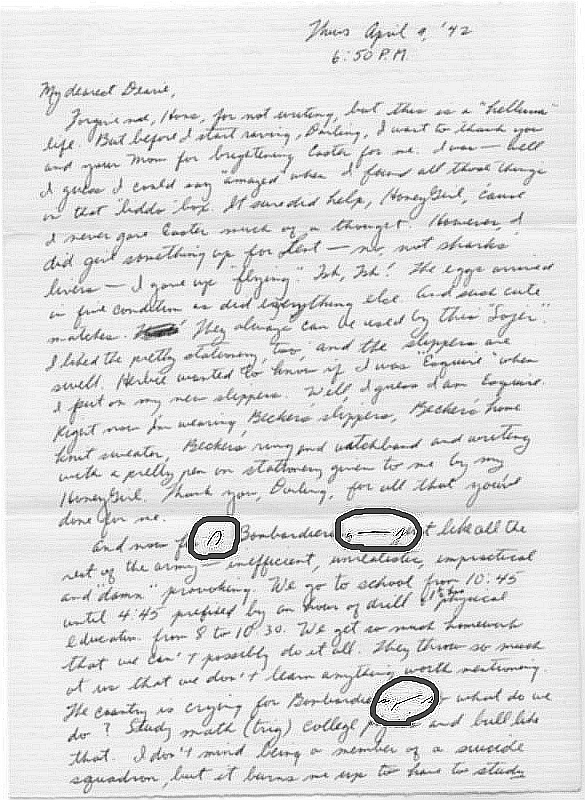 Thurs April 9, '42
6:50 P.M.
My dearest Dearie,
Forgive me, Hons, for not writing, but this is a "helluva"
life. But before I start raving, Darling, I want to thank you
and your Mom for brightening Easter for me. I was — well
I guess I could say "amazed" when I found all those things
in that 'liddo' box. It sure did help, HoneyGirl, 'cause
I never gave Easter much of a thought. However, I
did give something up for Lent — no, not sharks'
livers — I gave up "flying". Tsh, Tsh! The eggs arrived
in fine condition as did everything else. And such cute
matches. They always can be used by this
I liked the pretty stationery, too, and the slippers are
swell. Herbie wanted to know if I was "Esquire" when
I put on my new slippers. Well, I guess I am Esquire.
Right now I'm wearing Becker's slippers, Becker's home
knit sweater, Becker's ring and watchband and writing
with a pretty pen on stationery given to me by my
HoneyGirl. Thank you, Darling, for all that you've
done for me.
And now Bombardiers like all the
rest of the army — inefficient, unrealistic, impractical
and "damn" provoking. We go to school from 10:45
until 4:45 prefixed by an hour of drill & physical
education from 8 to 10:30. We get so much homework
that we can't possibly do it all. They throw so much
at us that we don't learn anything worth mentioning.
The country is crying for what do we
do? Study math (trig) college and bull like
that. I don't mind being a member of a suicide
squadron, but it burns me up to have to study